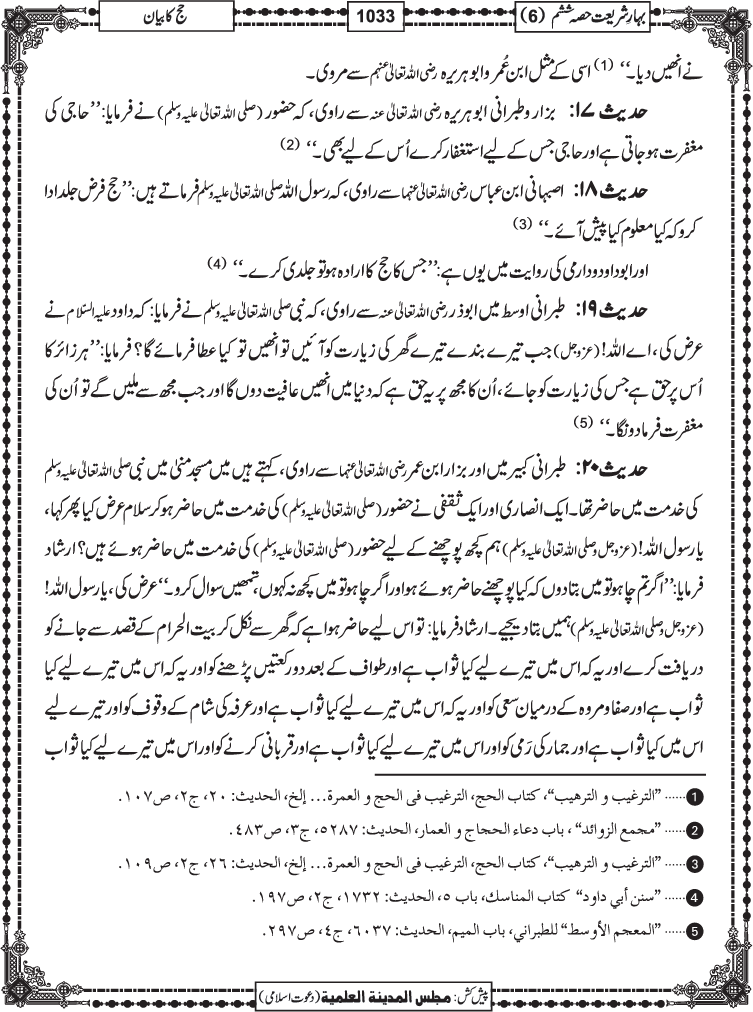 بہار شریعت حصہ ششم (6)
1033
حج کا بیان
نے انھیں دیا۔‘‘ (1) اسی کے مثل ابن عُمر و ابو ہریرہ رضی اللہ تعالیٰ عنہم سے مروی۔
حدیث ۱۷: بزار و طبرانی ابو ہریرہ رضی اللہ تعالیٰ عنہ سے راوی، کہ حضور (صلی اللہ تعالیٰ علیہ وسلم) نے فرمایا: ’’حاجی کی
مغفرت ہو جاتی ہے اور حاجی جس کے لیے استغفار کرے اُس کے لیے بھی۔‘‘ (2)
حدیث ۱۸: اصبہانی ابن عباس رضی اللہ تعالیٰ عنہما سے راوی، کہ رسول اللہ صلی اللہ تعالیٰ علیہ وسلم فرماتے ہیں: ’’حج فرض جلد ادا
کرو کہ کیا معلوم کیا پیش آئے۔‘‘ (3)
اور ابو داود و دارمی کی روایت میں یوں ہے: ’’جس کا حج کا ارادہ ہو تو جلدی کرے۔‘‘ (4)
حدیث ۱۹: طبرانی اوسط میں ابو ذر رضی اللہ تعالیٰ عنہ سے راوی، کہ نبی صلی اللہ تعالیٰ علیہ وسلم نے فرمایا: کہ داود علیہ السّلام نے
عرض کی، اے اللہ! (عزوجل) جب تیرے بندے تیرے گھر کی زیارت کو آئیں تو انھیں تو کیا عطا فرمائے گا؟ فرمایا: ’’ہر زائر کا
اُس پر حق ہے جس کی زیارت کو جائے، اُن کا مجھ پر یہ حق ہے کہ دنیا میں انھیں عافیت دوں گا اور جب مجھ سے ملیں گے تو اُن کی
مغفرت فرما دونگا۔‘‘ (5)
حدیث ۲۰: طبرانی کبیر میں اور بزار ابن عمر رضی اللہ تعالیٰ عنہما سے راوی، کہتے ہیں میں مسجد منیٰ میں نبی صلی اللہ تعالیٰ علیہ وسلم
کی خدمت میں حاضر تھا۔ ایک انصاری اور ایک ثقفی نے حضور (صلی اللہ تعالیٰ علیہ وسلم) کی خدمت میں حاضر ہو کر سلام عرض کیا پھر کہا،
یا رسول اللہ! (عزوجل و صلی اللہ تعالیٰ علیہ وسلم) ہم کچھ پوچھنے کے لیے حضور (صلی اللہ تعالیٰ علیہ وسلم) کی خدمت میں حاضر ہوئے ہیں؟ ارشاد
فرمایا: ’’اگر تم چاہو تو میں بتا دوں کہ کیا پوچھنے حاضر ہوئے ہو اور اگر چاہو تو میں کچھ نہ کہوں، تمھیں سوال کرو۔‘‘ عرض کی، یا رسول اللہ!
(عزوجل و صلی اللہ تعالیٰ علیہ وسلم) ہمیں بتا دیجیے۔ ارشاد فرمایا: تو اس لیے حاضر ہوا ہے کہ گھر سے نکل کر بیت الحرام کے قصد سے جانے کو
دریافت کرے اور یہ کہ اس میں تیرے لیے کیا ثواب ہے اور طواف کے بعد دو رکعتیں پڑھنے کو اور یہ کہ اس میں تیرے لیے کیا
ثواب ہے اور صفا و مروہ کے درمیان سعی کو اور یہ کہ اس میں تیرے لیے کیا ثواب ہے اور عرفہ کی شام کے وقوف کو اور تیرے لیے
اس میں کیا ثواب ہے اور جمار کی رَمی کو اور اس میں تیرے لیے کیا ثواب ہے اور قربانی کرنے کو اور اس میں تیرے لیے کیا ثواب
1 ...... "الترغيب و الترهيب"، كتاب الحج، الترغيب فى الحج و العمرة... إلخ، الحديث: ٢٠، ج٢، ص١٠٧.
2 ...... "مجمع الزوائد" ، باب دعاء الحجاج و العمار، الحديث: ٥٢٨٧، ج٣، ص٤٨٣.
3 ...... "الترغيب و الترهيب"، كتاب الحج، الترغيب فى الحج و العمرة... إلخ، الحديث: ٢٦، ج٢، ص١٠٩.
4 ...... "سنن أبي داود" كتاب المناسك، باب ٥، الحديث: ١٧٣٢، ج٢، ص١٩٧.
5 ...... "المعجم الأوسط" للطبراني، باب الميم، الحديث: ٦٠٣٧، ج٤، ص٢٩٧.
پیش کش: مجلس المدینة العلمیة (دعوت اسلامی)